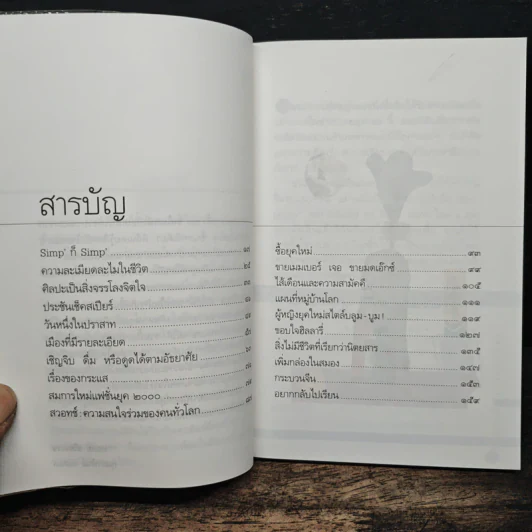 สารบัญ
Simp' ก็ Simp'
ความละเมียดละไมในชีวิต ๒๕
ศิลปะเป็นสิ่งจรรโลงจิตใจ
ประชันเช็คสเปียร์
วันหนึ่งในปราสาท
เมืองที่มีรายละเอียด
เชิญจิบ ดื่ม หรือดูดได้ตามอัธยาศัย
เรื่องของกระแส
สมการใหม่แฟชั่นยุค ๒๐๐๐
สวอทช์ : ความสนใจร่วมของคนทั่วโลก
ชื่อยุคใหม่ ๙๓
ชายเมมเบอร์ เจอ ชายมดเอ๊กซ์ ๙๙
ไส้เดือนและความสามัคคี ๑๐๕
แผนที่หมู่บ้านโลก ๑๑๑
ผู้หญิงยุคใหม่สไตล์บลูม - บูม! ๑๑๙
ขอบใจฮิลลารี่ ๑๒๗
สิ่งไม่มีชีวิตที่เรียกว่านิตยสาร ๑๓๕
เพิ่มกล่องในสมอง ๑๔๗
กระบวนจีน ๑๕๓
อยากกลับไปเรียน ๑๕๙